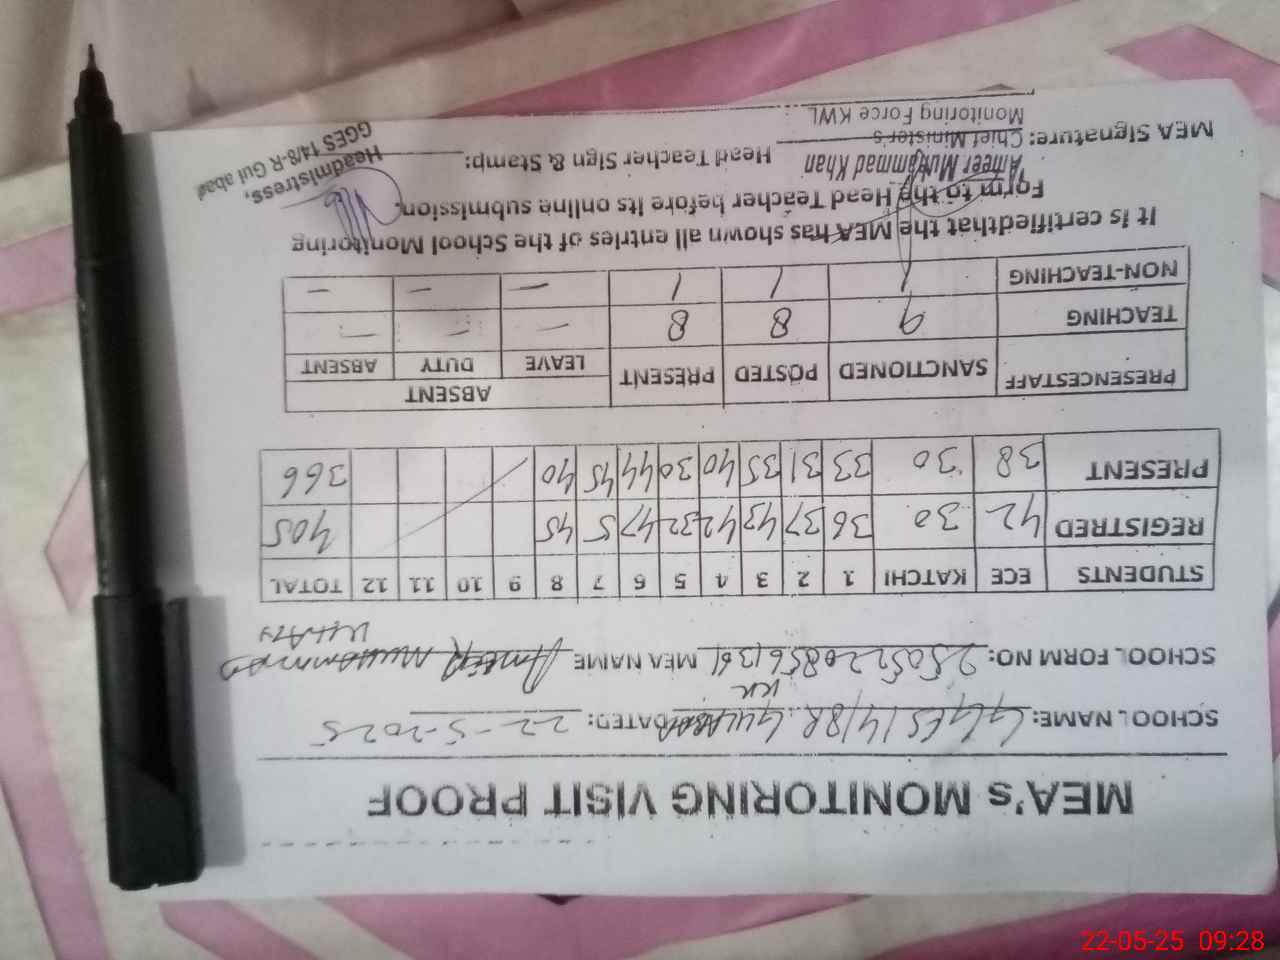 MEA's MONITORING VISIT PROOF
SCHOOL NAME: GGES 14/8R DATED: 22-5-2025
SCHOOL FORM NO: MEA NAME AMEER MUHAMMAD
KHAN
STUDENTS ECE KATCHI 1 2 3 4 5 6 7 8 9 10 11 12 TOTAL
REGISTRED 42 30 36 37 43 42 32 47 45 405
PRESENT 38 30 33 31 35 40 30 44 45 40 366
PRESENCESTAFF SANCTIONED POSTED PRESENT ABSENT
LEAVE DUTY ABSENT
TEACHING 9 8 8 - - -
NON-TEACHING 1 1 1 - - -
It is certifiedthat the MEA has shown all entries of the School Monitoring
Form to the Head Teacher before its online submission.
Ameer Muhammad Khan
MEA Signature: Chief Minister's Head Teacher Sign & Stamp:
Monitoring Force KWL
Headmistress,
GGES 14/8-R Gul abad
22-05-25 09:28